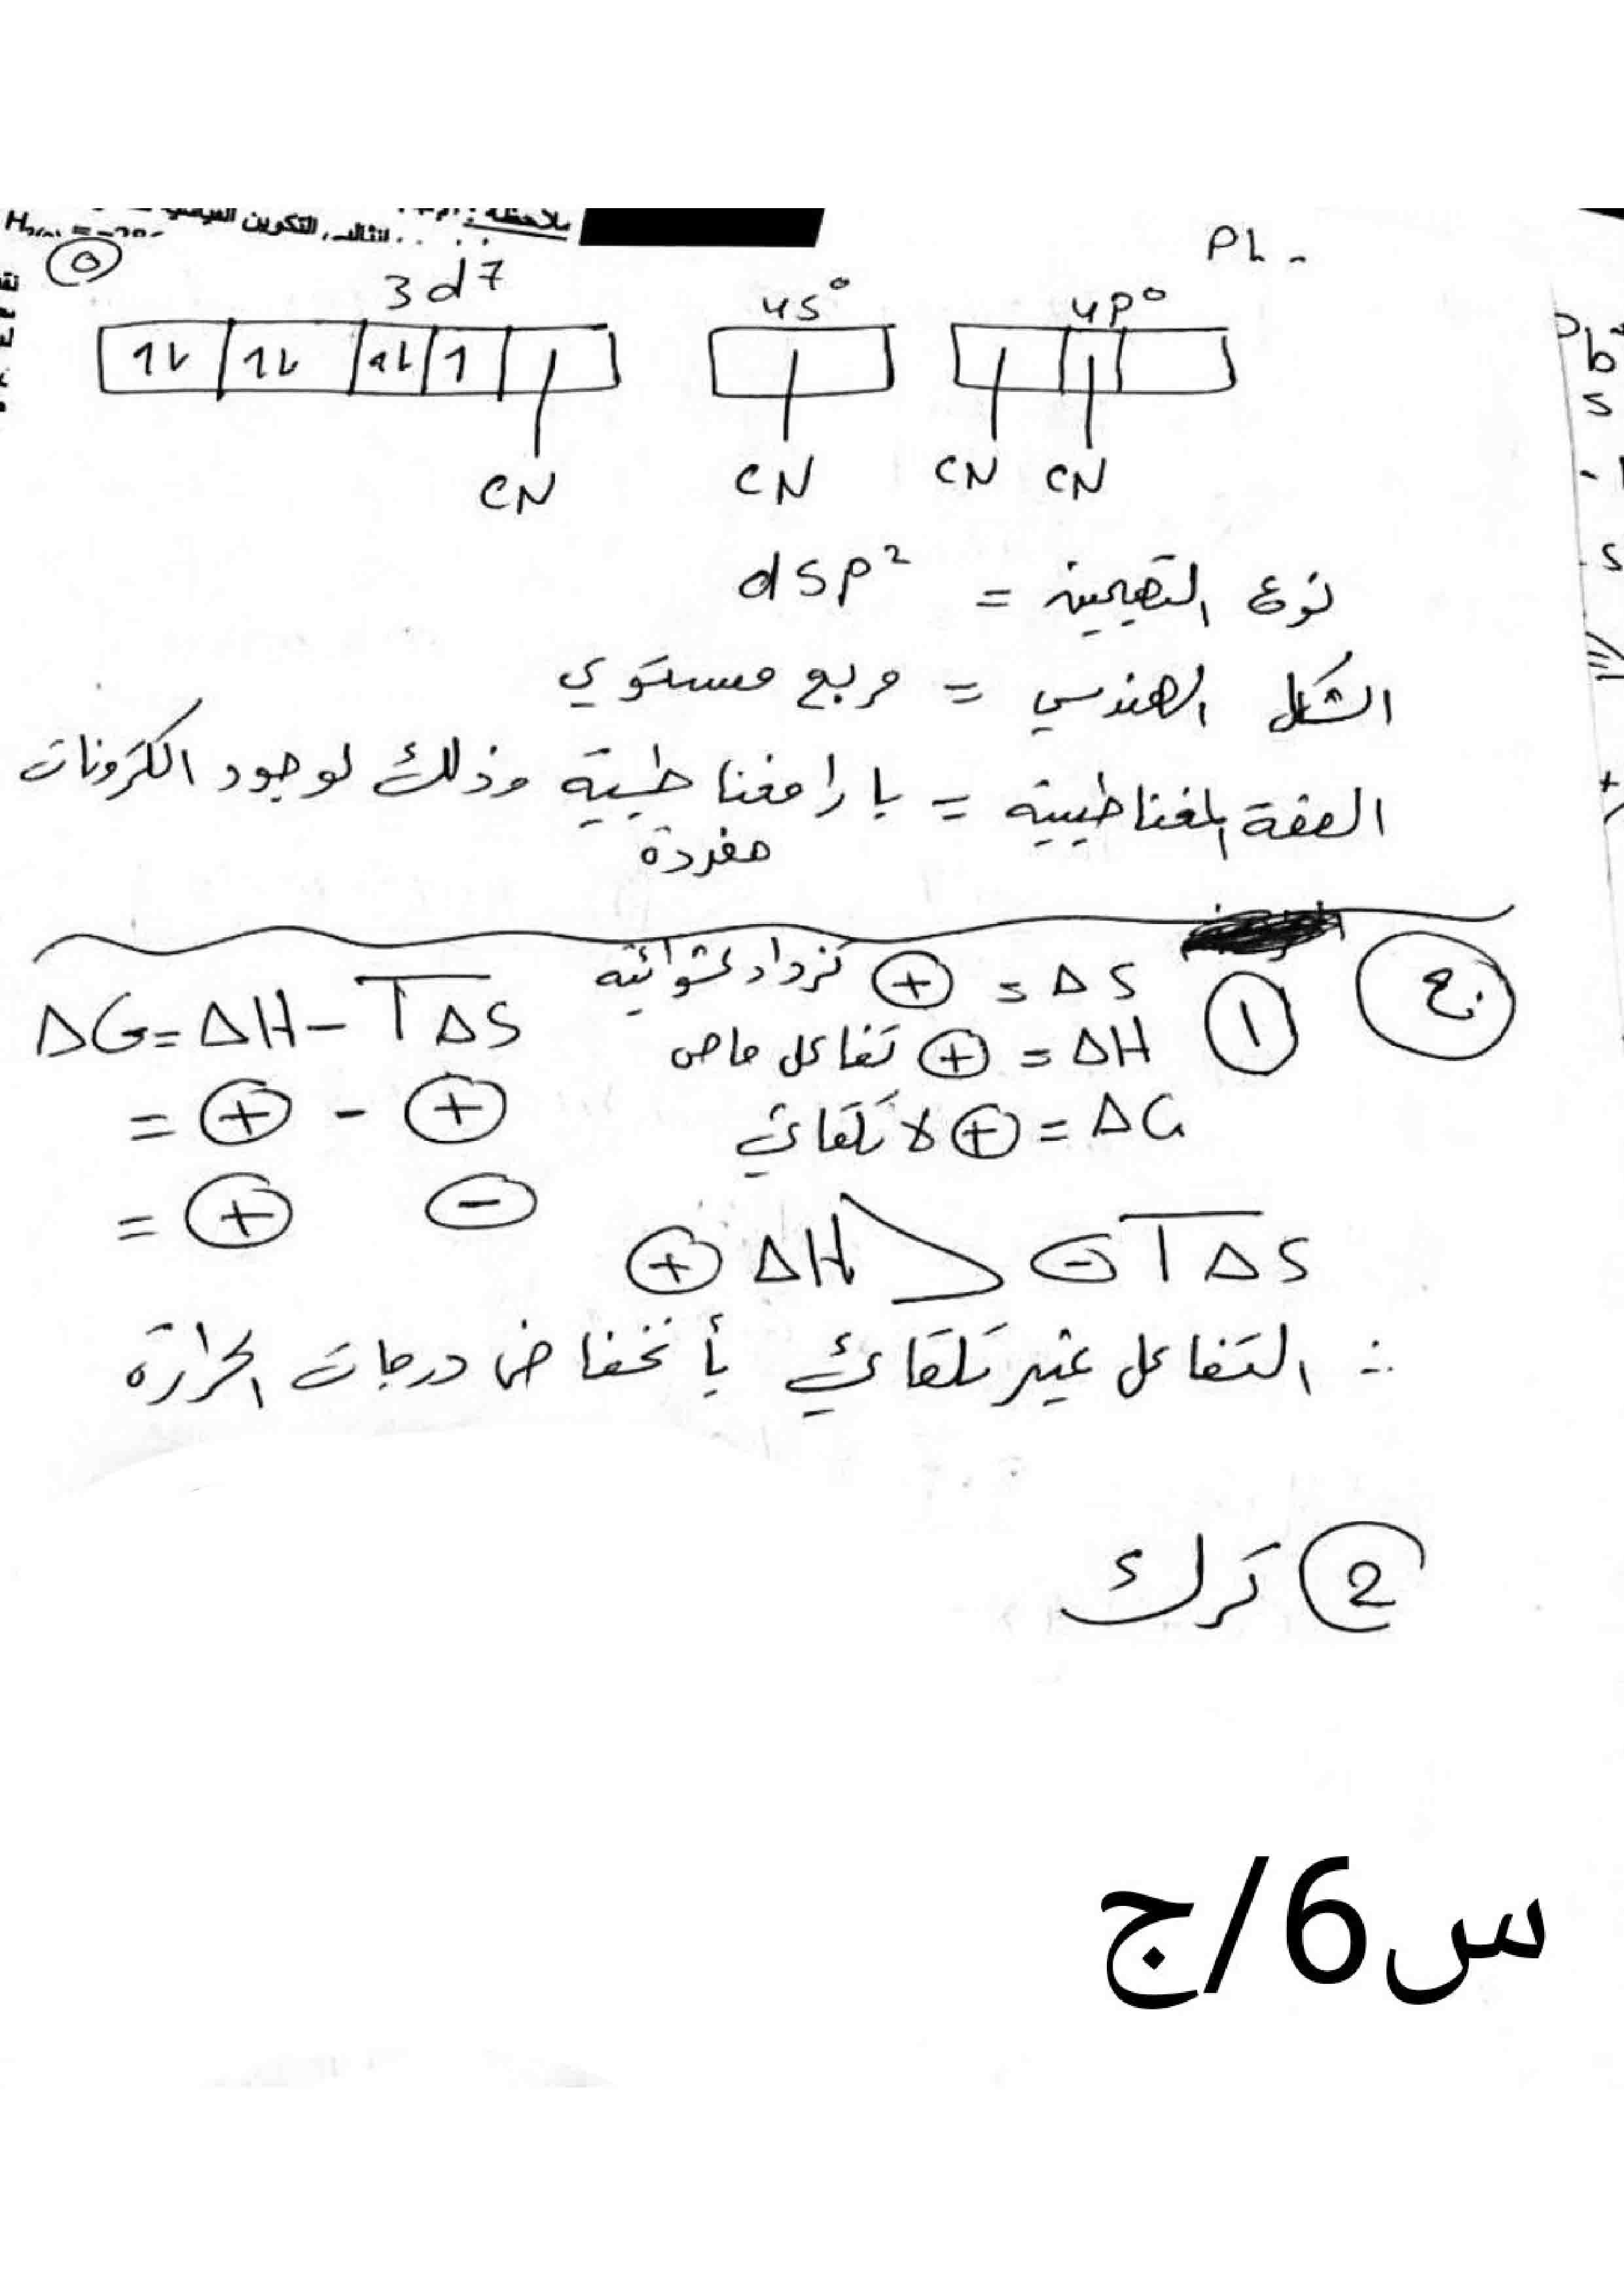 ملاحظة:
التكوين
PL -
0
3d7 4s° 4p°
1L 1L 1L 1
CN CN CN CN
نوع التهجين = dsp²
الشكل الهندسي = مربع مستوي
الصفة المغناطيسية = بارامغناطيسية وذلك لوجود الكترونات
مفردة
ج
1 ΔS = + تزداد عشوائية
ΔH = + تفاعل ماص
ΔG = + لا تلقائي
ΔG = ΔH - TΔS
= + - +
= + -
+ ΔH > - TΔS
∴ التفاعل غير تلقائي بأنخفاض درجات الحرارة
2 ترك
س6/ج